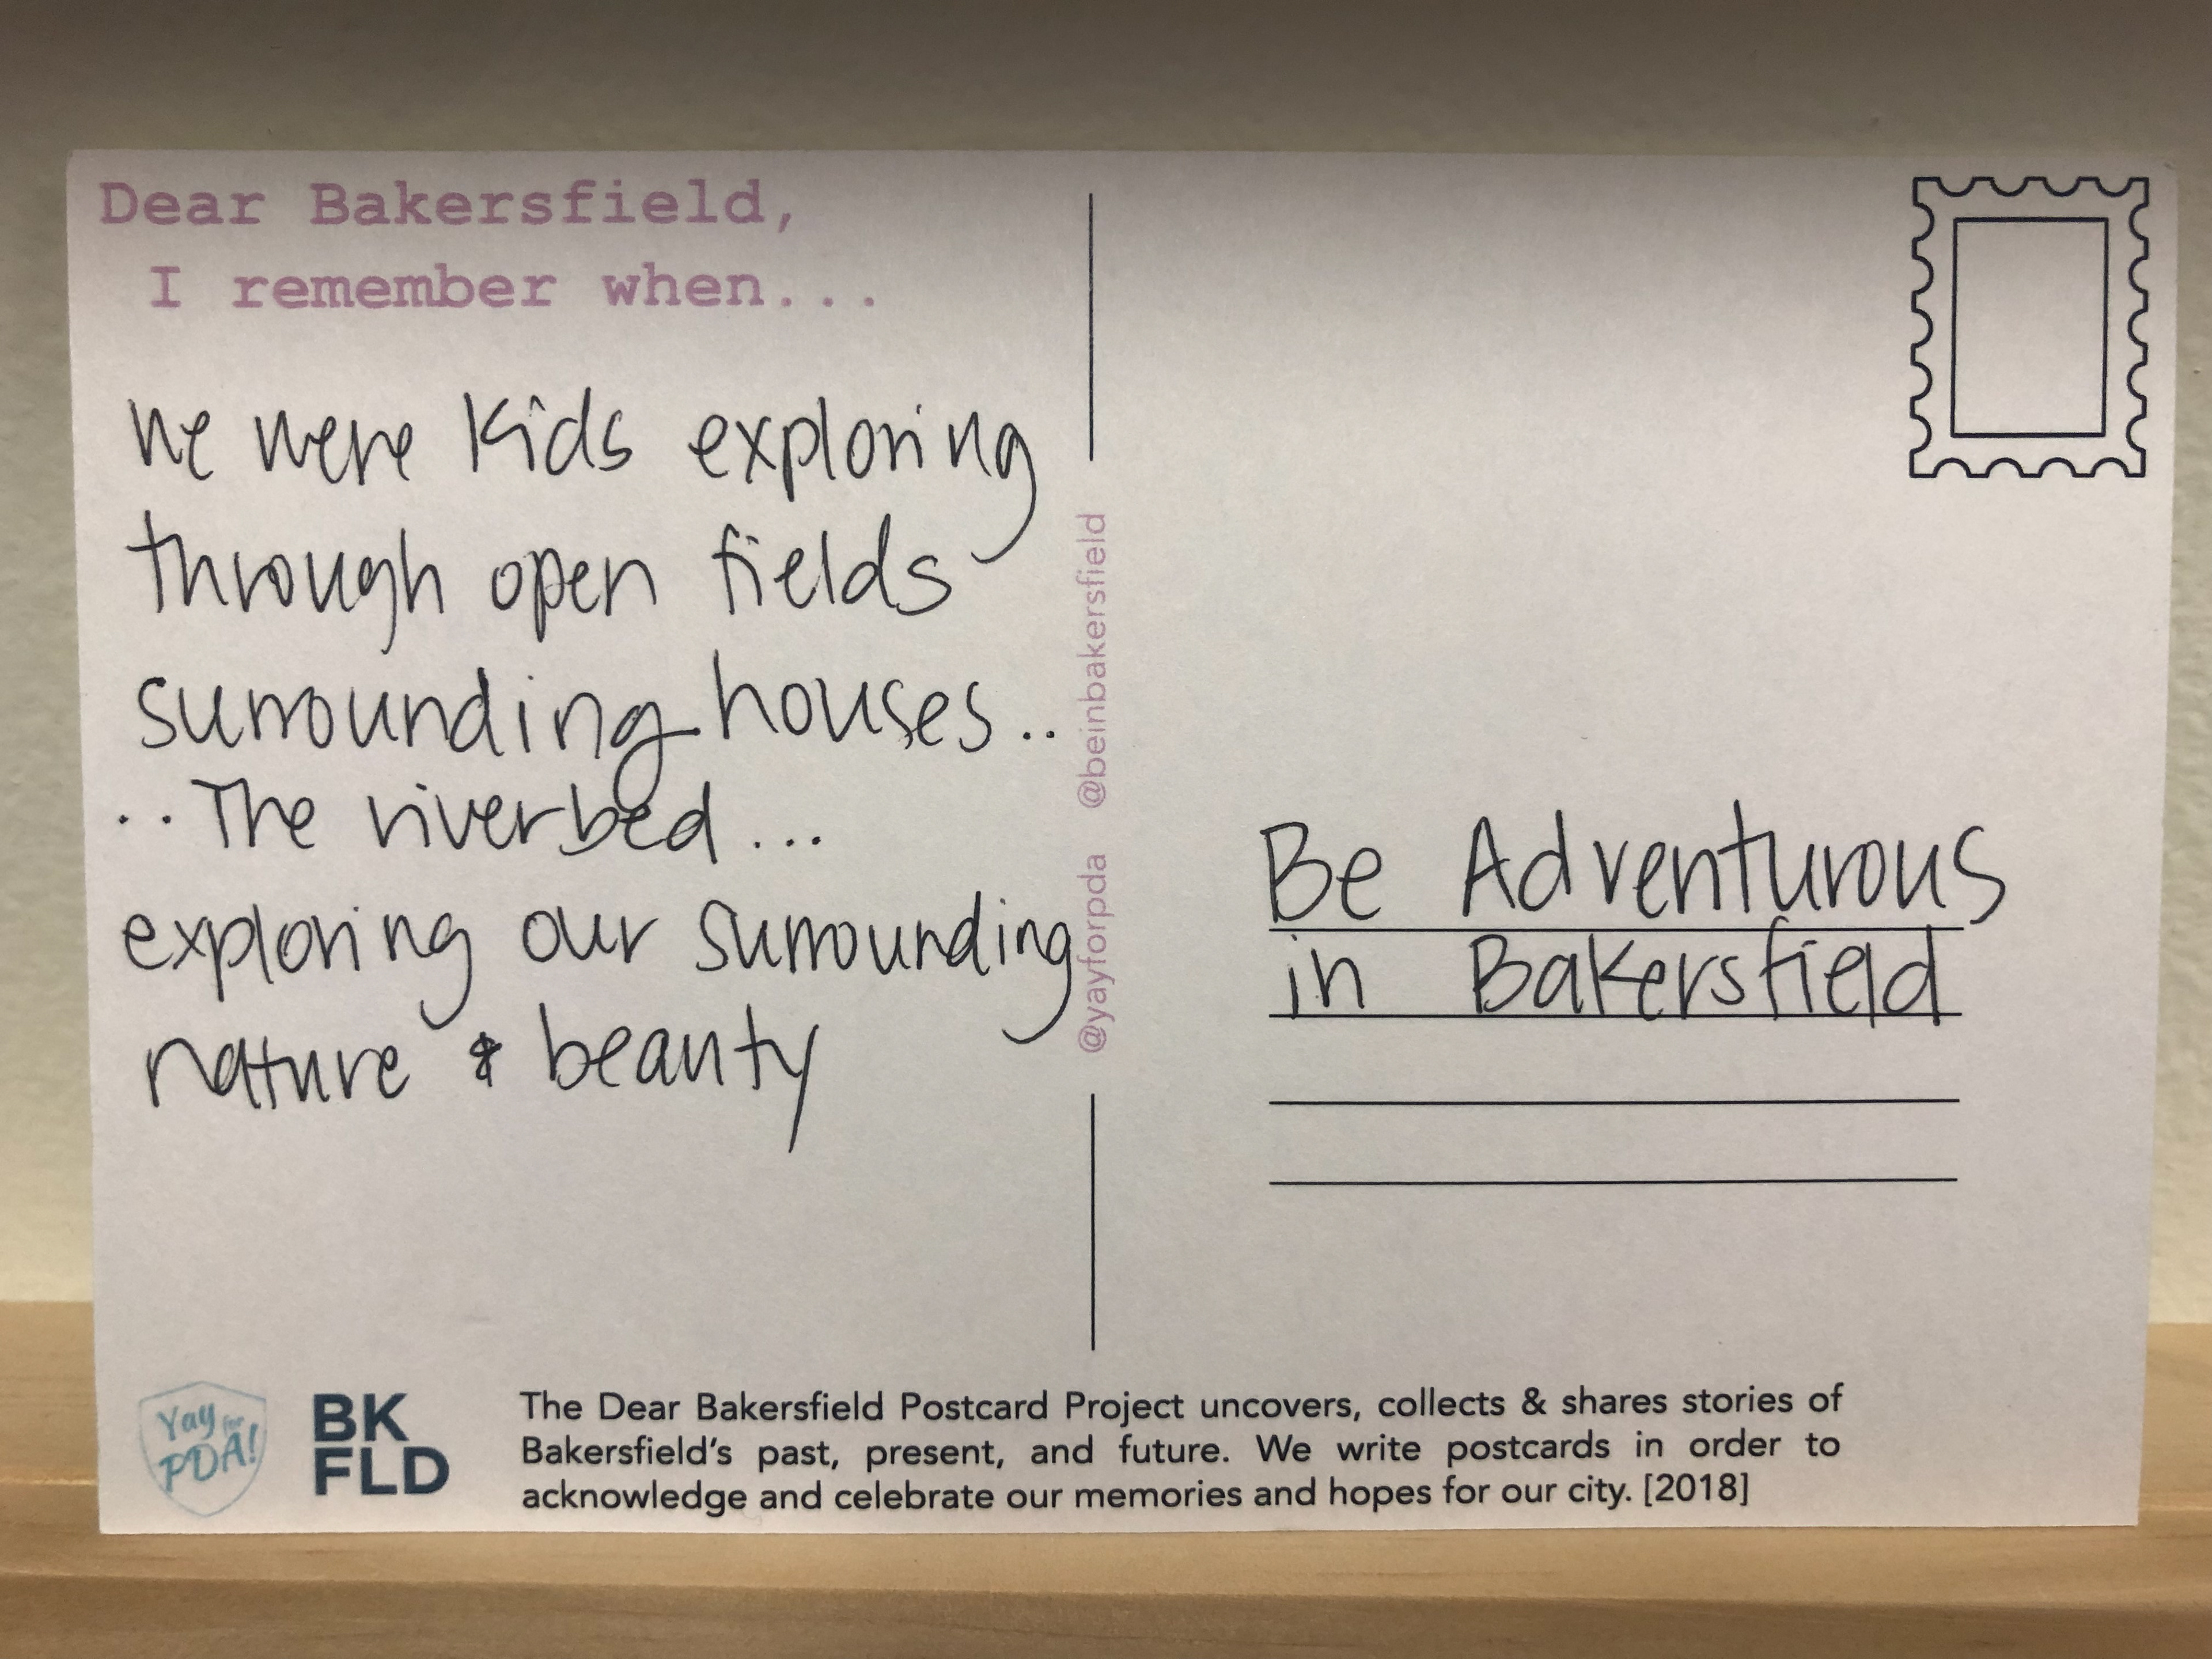 Dear Bakersfield,
I remember when...
we were kids exploring
through open fields
surrounding houses..
..The riverbed...
exploring our surrounding
nature & beauty
@yayforpda @beinbakersfield
Be Adventurous
in Bakersfield
Yay for
PDA!
BK
FLD
The Dear Bakersfield Postcard Project uncovers, collects & shares stories of
Bakersfield's past, present, and future. We write postcards in order to
acknowledge and celebrate our memories and hopes for our city. [2018]